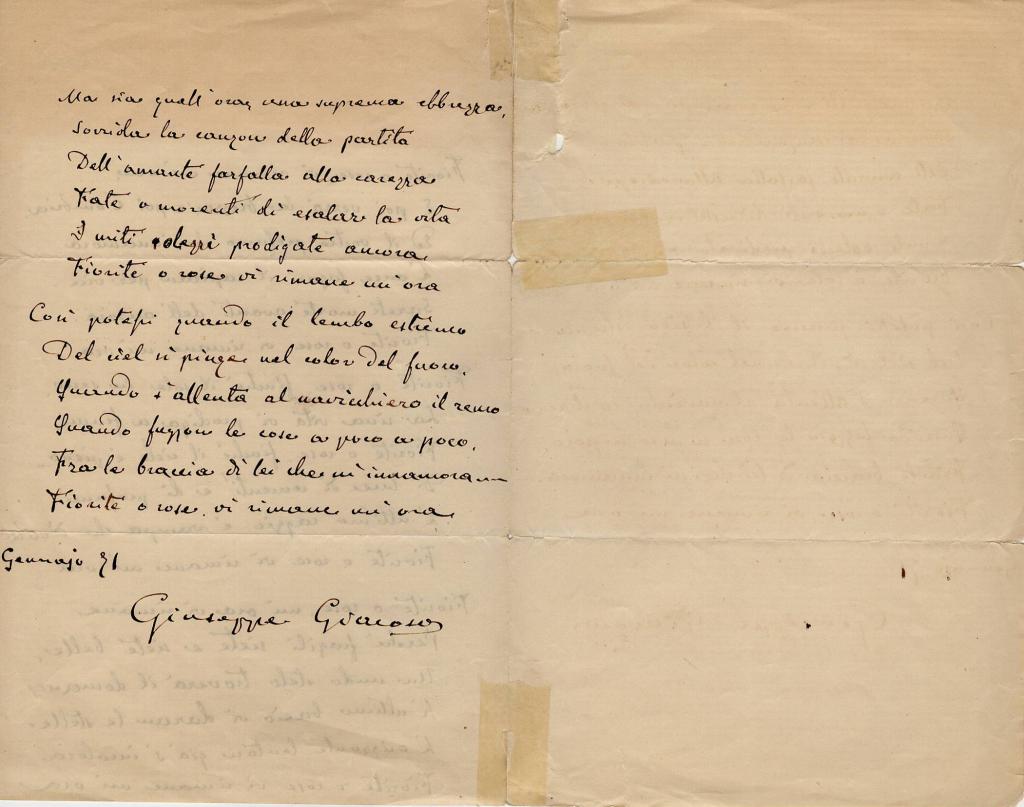 Ma sia quell'ora, una suprema ebbrezza,
Sorrida la canzon della partita
Dell'amante farfalla alla carezza
Fate o morenti di esalar la vita
I miti olezzi prodigate ancora
Fiorite o rose vi rimane un'ora
Così potessi quando il lembo estremo
Del ciel si pinge nel color del fuoco,
Quando s'allenta al navicchiero il remo
Quando fuggon le cose a poco a poco,
Fra le braccia di lei che m'innamora
Fiorite o rose, vi rimane un'ora
Gennajo 71
Giuseppe Giacosa